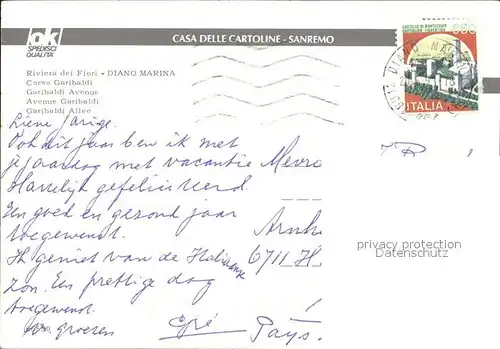 ak
SPEDISCI
QUALITA'
CASA DELLE CARTOLINE - SANREMO
CASTELLO DI MONTECCHIO
CASTIGLION FIORENTINO
ITALIA
DIANO MA
Riviera dei Fiori - DIANO MARINA
Corso Garibaldi
Garibaldi Avenue
Avenue Garibaldi
Garibaldi Allee
Lieve jarige.
Ook dit jaar ben ik met
je jaardag met vacantie
Hartelijk gefeliciteerd.
Een goed en gezond jaar
toegewenst.
Ik geniet van de Italiaanse
zon. Een prettige dag
toegewenst.
groeten
Mevro
Arnhe
6711 H
Pays
privacy protection
Datenschutz